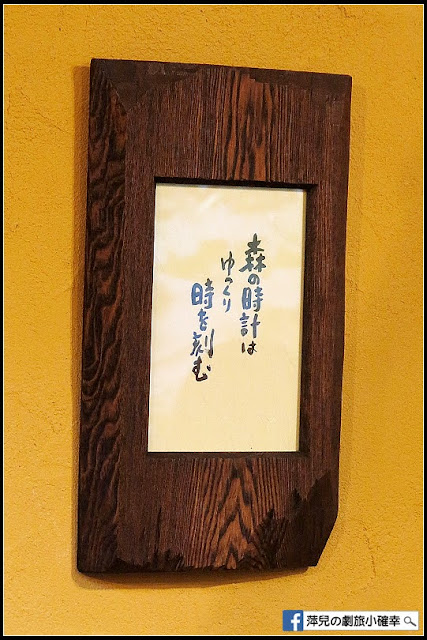 森の時計は
ゆっくり
時を刻む
萍兒の劇旅小確幸